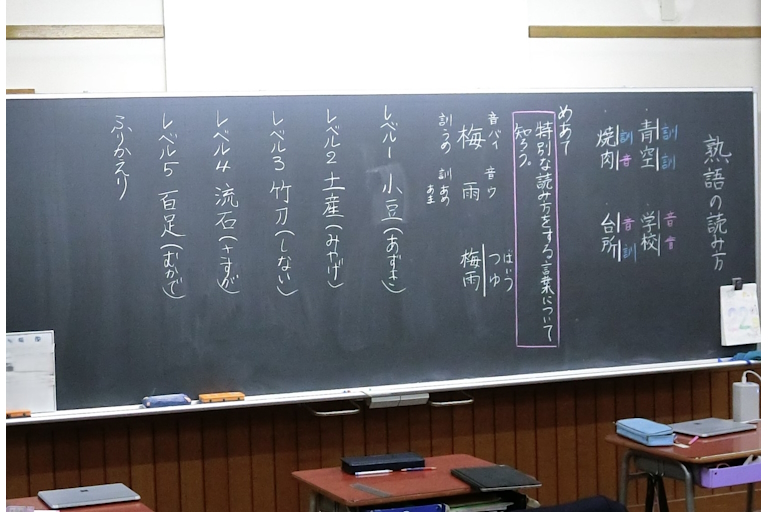 熟語の読み方
青空 訓 訓
学校 音 音
焼肉 訓 音
台所 音 訓
めあて
特別な読み方をする言葉について
知ろう。
音バイ 梅 訓うめ
音ウ 雨 訓あめ あま
ばいう
つゆ
梅雨
レベル1 小豆(あずき)
レベル2 土産(みやげ)
レベル3 竹刀(しない)
レベル4 流石(さすが)
レベル5 百足(むかで)
ふりかえり